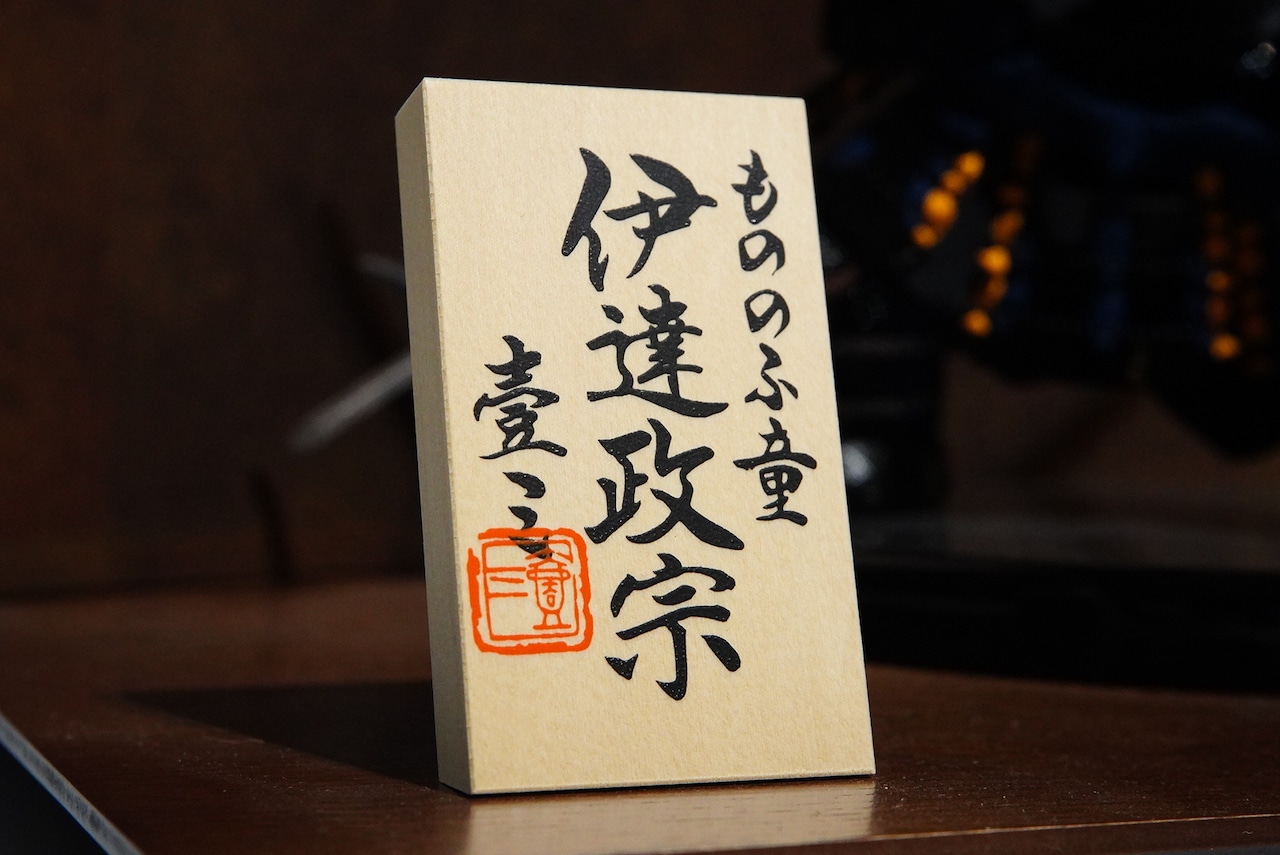 もののふ童
伊達政宗
壹三
壹三